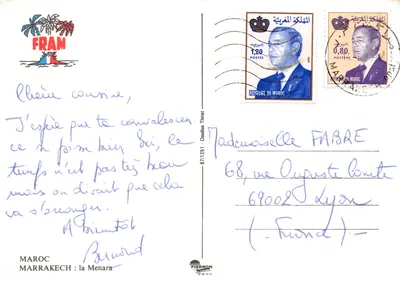 FRAM
Chère cousine,
J'espère que ta convalescence
se passe bien. Ici, le
temps n'est pas très beau
mais on disait que cela
va s'arranger.
A bientôt
Bernard
MAROC
MARRAKECH : la Menara
87/1291 - Claudius Thiriet
PIERRON
المملكة المغربية
1,20
POSTES
ROYAUME DU MAROC
المملكة المغربية
0,80
POSTES
ROYAUME DU MAROC
Mademoiselle FABRE
68, rue Auguste Comte
69002 Lyon
(- France -)